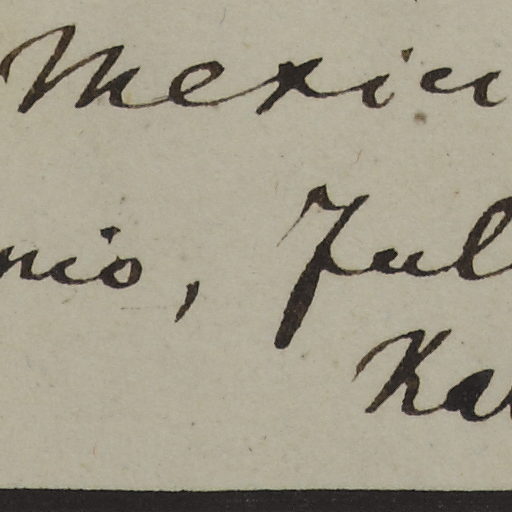 Mexic
nio, Jul
Ka